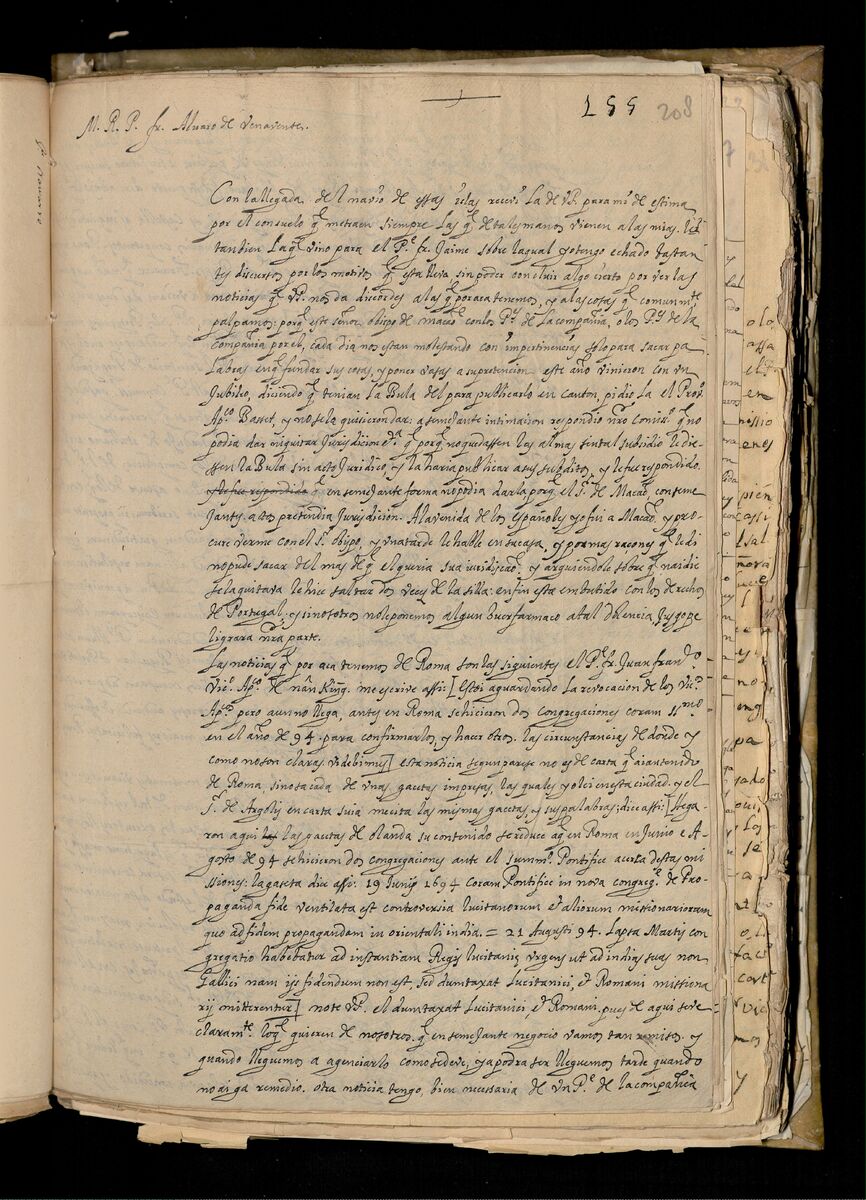 155 208
M. R. P. fr. Alvaro de Venavente.
Con la llegada del navio de essas islas receví la de VP. para mi de estima
por el consuelo q̃ me traen siempre las q̃ de tales manos vienen a las mias.
tanbien la q̃ vino para el Pe. fr. Jaime sobre la qual yo tengo echado bastan
tes discursos por los motivos q̃ esta lleva sin poder concluir algo cierto por ver las
noticias q̃ VP. nos da discordes a las q̃ por aca tenemos, y a las cosas q̃ comunmte.
palpamos: porq̃ este señor obispo de macao con los Ps. de la compañia, o los Ps. de la
compañia por el, cada dia nos estan molestando con impertinencias solo para sacar pa
labras en q̃ fundar sus cosas, y poner vasas a su pretencion. este año vinieron con un
Jubileo, diciendo q̃ tenian la Bula del para publicarlo en canton, pidio la el Prov.
Apco. Basset, y no se la quisieron dar: a semejante intimacion respondio nro Comisro. q̃ no
podia dar ni quitar Jurisdicion &a. q̃ porq̃ no quedassen las almas sin tal subsidio le die-
ssen la Bula sin acto Juridico, y la haria publicar a sus subditos, y le fue respondido.
y le fue respondido q̃ en semejante forma no podia darla porq̃ el Sr. de Macao con seme
jantes actos pretendia Jurisdicion. A la venida de los Españoles yo fui a Macao, y pro-
curè verme con el Sr. obispo, y una tarde le hable en su casa, y por mas raçones q̃ le di
no pude sacar del mas de q̃ el queria sua iurisdição, y arguiendole sobre q̃ naidie
se la quitava le hice saltar dos veces de la silla: en fin esta embutido con los derechos
de Portugal, y si nosotros no le ponemos algun buen farmaco a tal dolencia, juzgo pe
ligrara nra parte.
Las noticias q̃ por aca tenemos de Roma son las siguientes el Pe. fr. Juan Franco.
Vico. Apco. de nân Kîng. me escrive assi: [Estoi aguardando la revocacion de los Vics.
Apcos. pero aun no llega, antes en Roma se hicieron dos Congregaciones coram SSmo.
en el año de 94. para confirmarlos, y hacer otros. las circunstancias de donde y
como no son claras videbimus] esta noticia segun parese no es de carta q̃ aia tenido
de Roma, sino sacada de unas gacetas impresas, las quales yo lei en esta ciudad. y el
Sr. de Argolis en carta suia me cita las mismas gacetas, y sus palabras; dice assi: [Llega-
ron aqui las las gacetas de olanda su contenido se reduce aq̃ en Roma en Junio e A-
gosto de 94 se hicieron dos congregaciones ante el summo. Pontifice acerca destas mi
ssiones: la gaseta dice assi. 19 Junij 1694 coram Pontifice in nova congrege. de Pro-
paganda fide ventilata est controversia lucitanorum et aliorum missionariorum
quo ad fidem propagandam in orientali india. = 21 Augusti 94. lapsa Martis con
gregatio habebatur ad instantiam Regis lucitanis, urgens ut ad indias suas non
Gallici nam ijs fidendum non est, sed dumtaxat Lucitanici, et Romani missiona
rij mitterentur] note VP. el dumtaxat Lucitanici, et Romani. pues de aqui se ve
claramte. lo q̃ quieren de nosotros. q̃ en semejante negocio vamos tan remisos. y
quando lleguemos a agenciarlo como se deve, ya podra ser lleguemos tarde quando
no aiga remedio. otra noticia tengo, bien necessaria de un Pe. de la compañia